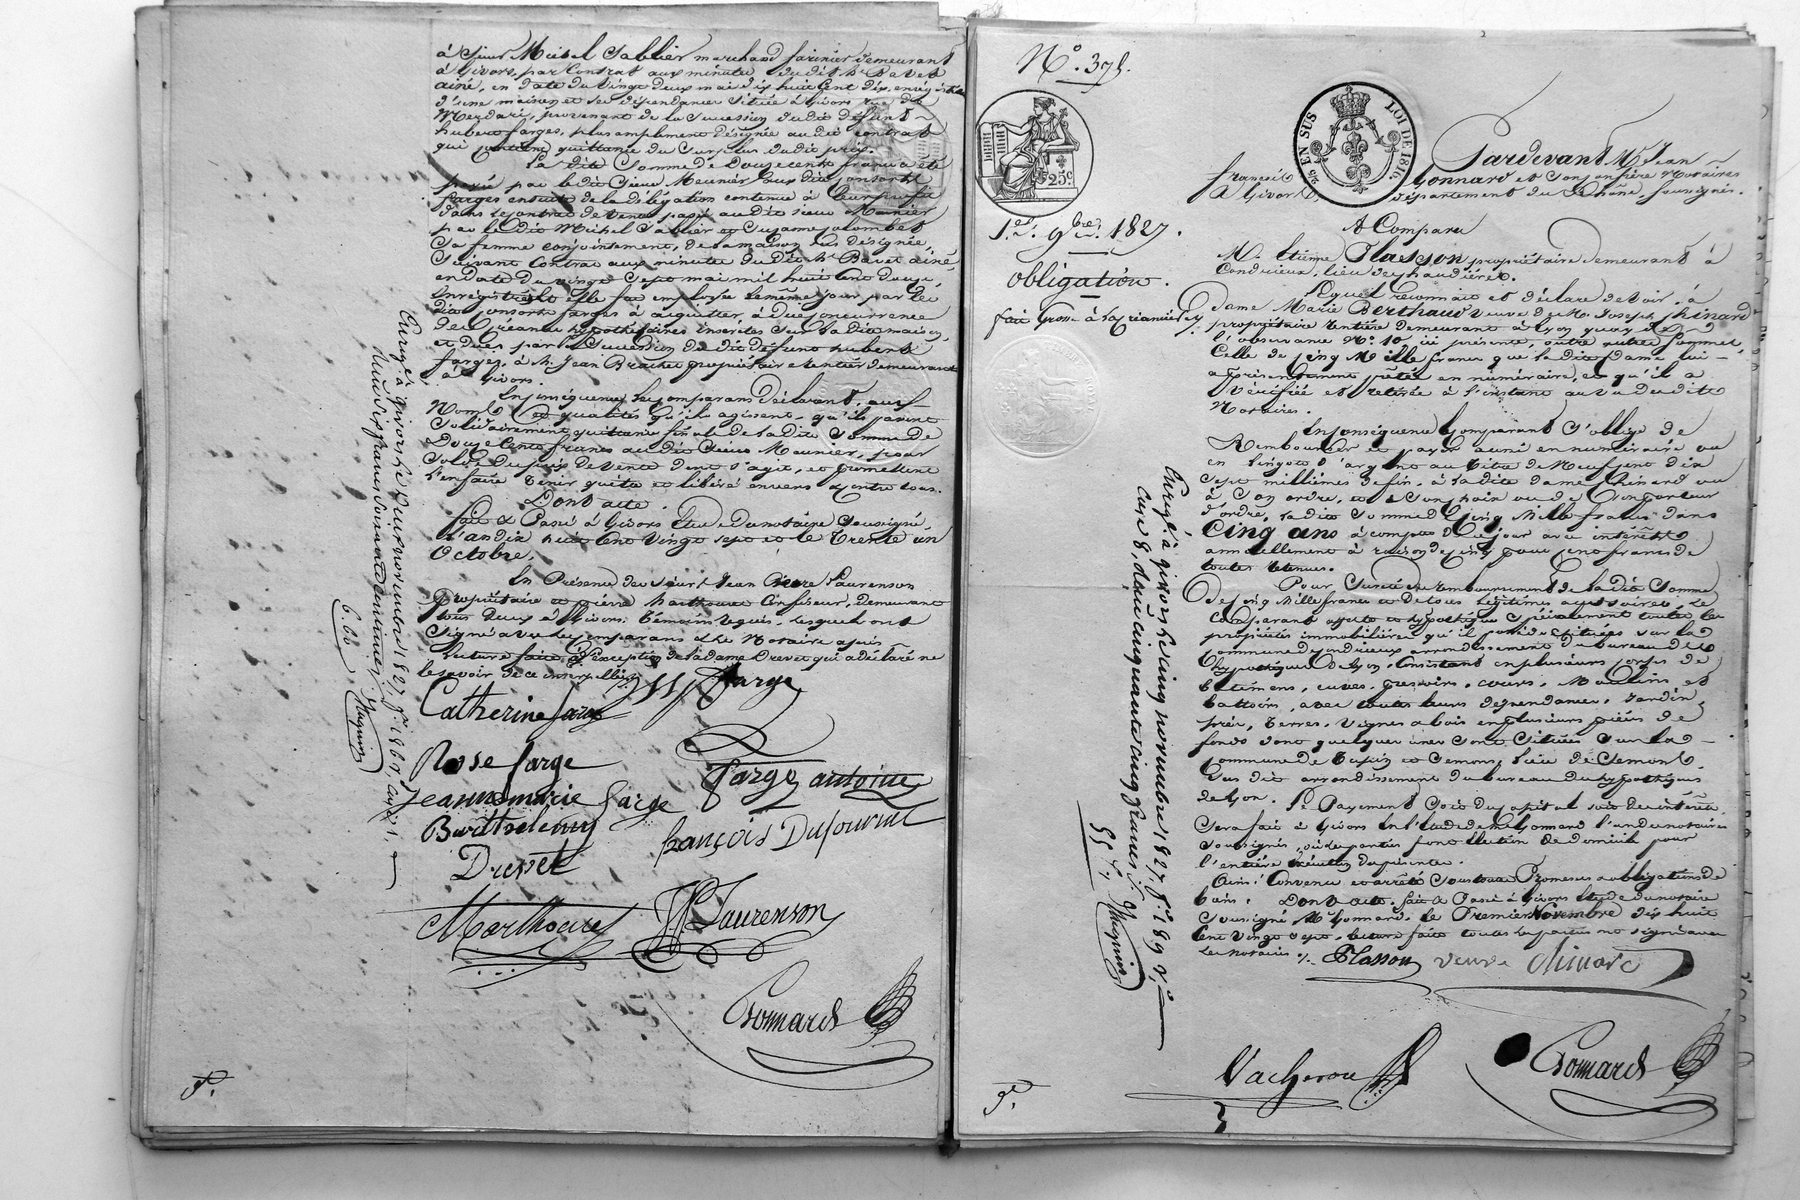 à Sieur Michel Sablier marchand farinier demeurant
à Givors, par Contrat aux minutes dudit Mr Bavet
ainé, en date du vingt deux mai dix huit Cent dix, enrégistré
d'une maison et ses dépendances située à Givors rue du
provenant de la Succession dudit défunt
hubert farges, plus amplement désignée au dit contrat
qui contient quittance du Surplus dudit prix.
La dite Somme de Douze cents francs a été
payé par le dit Sieur Meunier aux dits consorts
farges ensuite de la délégation contenue à leur profit
dans le contrat de vente passé au dit sieur Meunier
par le dit Michel Sablier et Suzanne
Sa femme conjointement, de la maison sus désignée,
Suivant Contrat aux minutes dudit Mr Bavet ainé,
en date du vingt Sept mai mil huit Cent douze,
Enrégistré. Elle fut employée le même jour par les
dits consorts farges à acquitter, à due concurrence
des Créances hypothécaires inscrites Sur la dite maison,
et dues par la Succession du dit défunt hubert
farges, à Mr. Jean Brachet propriétaire rentier demeurant
à Givors.
En conséquence, les comparans déclarent, aux
Noms et qualités qu'ils agissent, qu'ils passent
Solidairement quittance finale de la dite Somme de
Douze Cents francs au dit Sieur Meunier, pour
Solde du prix de vente dont s'agit, et promettent
l'en faire tenir quitte et libéré envers et contre tous.
Dont acte.
fait & Passé à Givors Etude du notaire Soussigné,
l'an dix huit Cent vingt sept et le trente un
Octobre,
En Présence des sieurs Jean Laurenson
propriétaire et pierre Marthoure Confiseur, demeurant
tous deux à Givors, témoins requis, lesquels ont
Signé avec les comparans & le Notaire après
lecture faite, à l'exception de la dame Drevet qui a déclaré ne
le savoir de ce interpellée.
farge
Catherine farge
Rose farge
Farge antoine
Jeanne marie farge
Barthelemy
Drevet
françois Dufournel
Marthoure
Laurenson
Gonnard
Enregé. à givors le deux novembre 1827. fo. 186
neuf Dix francs Soixante centimes
6.60
Huguin
No. 375.
25c.
25 EN SUS
LOI DE 1816.
1er. 9bre. 1827.
Obligation.
fait Grosse à la créancière
Pardevant Me Jean
françois Gonnard et Son confrère Notaires
à Givors, département du Rhône, soussignés.
A Comparu
M. Etienne Flasson propriétaire demeurant à
Condrieux, lieu des haudières.
Lequel reconnait et déclare devoir à
Dame Marie Berthaud veuve de Mr. Joseph Chinard
propriétaire rentière demeurant à Lyon quay de
l'observance No. 10, ici présente, outre autre Sommes,
Celle de Cinq Mille francs que la dite dame lui
a présentement prêtée en numéraire, et qu'il a
vérifiée et retirée à l'instant au vu du dits
Notaires.
En conséquence le comparant s'oblige de
Rembourser et payer aussi en numéraire ou
en lingots d'argent au titre de Neuf cent dix
Sept millièmes de fin, à la dite dame Chinard ou
à Son ordre, et à Son hoir ou de Son porteur
d'ordre, la dite Somme de Cinq Mille francs dans
Cinq ans à compter de ce jour avec intérêts
annuellement à raison de cinq pour cent francs de
toutes retenues.
Pour Sureté du remboursement de la dite Somme
de Cinq Mille francs et de tous légitimes accessoires, le
Comparant affecte et hypothèque Spécialement toutes les
propriétés immobilières qu'il possède situées sur la
commune de Condrieux arrondissement du bureau des
hypothèques de Lyon, Consistant en plusieurs corps de
batimens, cuves, pressoirs, cours, Moulins et
battoirs, avec toutes leurs dépendances, Jardin,
près, terres, vignes & bois en plusieurs pièces de
fonds dont quelques unes sont Situées Sur la
commune de Tupin et Semons, lieu de Clemont
dit arrondissement du bureau des hypothèques
de Lyon. Le Payement Soit du capital soit des intérêts
sera fait à Givors en l'Etude de Me Gonnard l'un des notaires
soussignés, où les parties font élection de domicile pour
l'entière exécution du présent.
Ainsi Convenu et arrêté Sous toutes Promesses & obligations de
biens. Dont acte. fait & Passé à Givors étude du notaire
Soussigné Me Gonnard. le Premier Novembre dix huit
Cent vingt sept, lecture faite toutes les parties ont signé avec
les notaires %.
Flasson
veuve Chinard
Vacheron
Gonnard
Enregé. à givors le cinq novembre 1827. fo. 189 ro.
case 8. reçu cinquante cinq francs.
55 f
Huguin